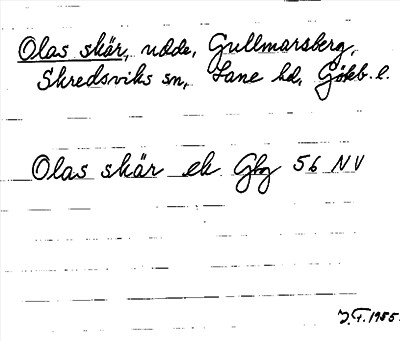 Olas skär, udde, Gullmarsberg,
Skredsviks sn, Lane hd, Gökb. l.
Olas skär ek. Gbg 56 NV
J.F. 1955.